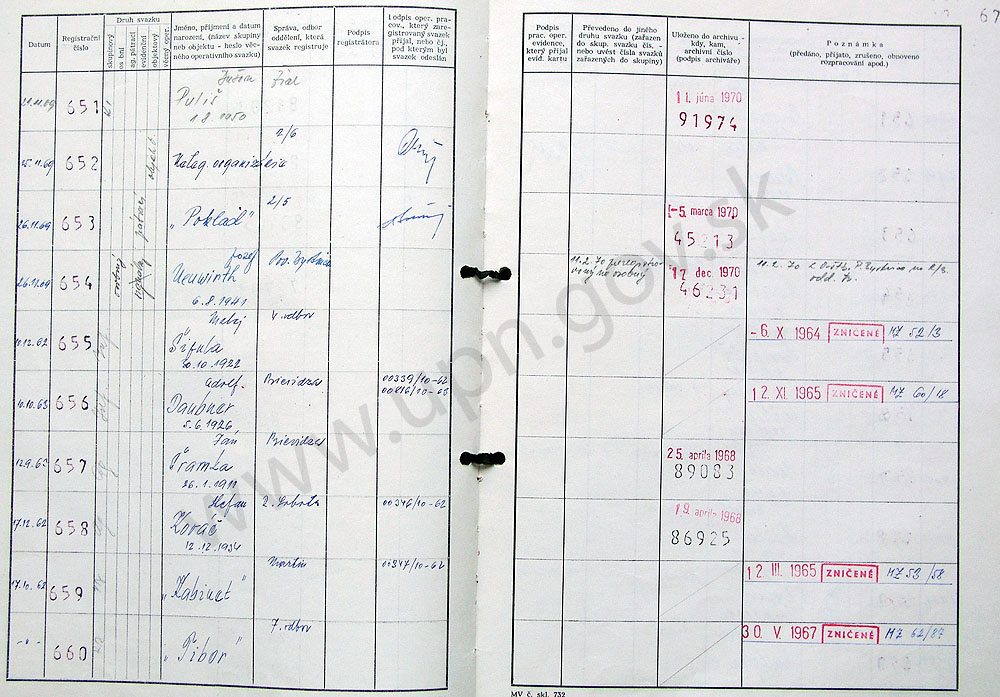 67
Datum
Registrační číslo
Druh svazku
skupinový
osobní
ag. pátrací
evidenční
objektový
všeob. oper.
Jméno, příjmení a datum narození, (název skupiny neb objektu - heslo všeobecného operativního svazku)
Správa, odbor oddělení, která svazek registruje
Podpis registrátora
Podpis oper. pracov., který zaregistrovaný svazek přijal, nebo čj., pod kterým byl svazek odeslán
Podpis prac. oper. evidence, který přijal evid. kartu
Převedeno do jiného druhu svazku (zařazen do skup. svazku čís. - nebo uvést čísla svazků zařazených do skupiny)
Uloženo do archivu - kdy, kam, archivní číslo (podpis archiváře)
Poznámka
(předáno, přijato, zrušeno, obnoveno rozpracování apod.)
651
Puliš
1.8.1950
11. júna 1970
91974
25.11.69
652
2/6
26.11.69
653
"Poklad"
2/5
-5. marca 1970
45213
26.11.69
654
osobný
Jozef
Neuwirth
6.8.1941
11.2.70
12 dec 1970
46231
11.2.70
10.12.62
655
Matej
Šifula
20.10.1922
4. odbor
-6. X 1964
ZNIČENÉ
MZ 52/3
10.10.63
656
Adolf
Daubner
5.6.1926
Prievidza
00339/10-62
12. XI. 1965
ZNIČENÉ
MZ 60/18
12.9.63
657
Ján
Šramka
26.1.1911
Prievidza
25. apríla 1968
89083
17.12.62
658
Štefan
Kováč
12.12.1934
00346/10-62
19. apríla 1968
86925
17.10.62
659
"Kabinet"
Martin
00347/10-62
12. III. 1965
ZNIČENÉ
MZ 53/58
-"-
660
"Tibor"
7. odbor
30. V. 1967
ZNIČENÉ
MZ 62/87
MV č. skl. 732
www.upn.gov.sk